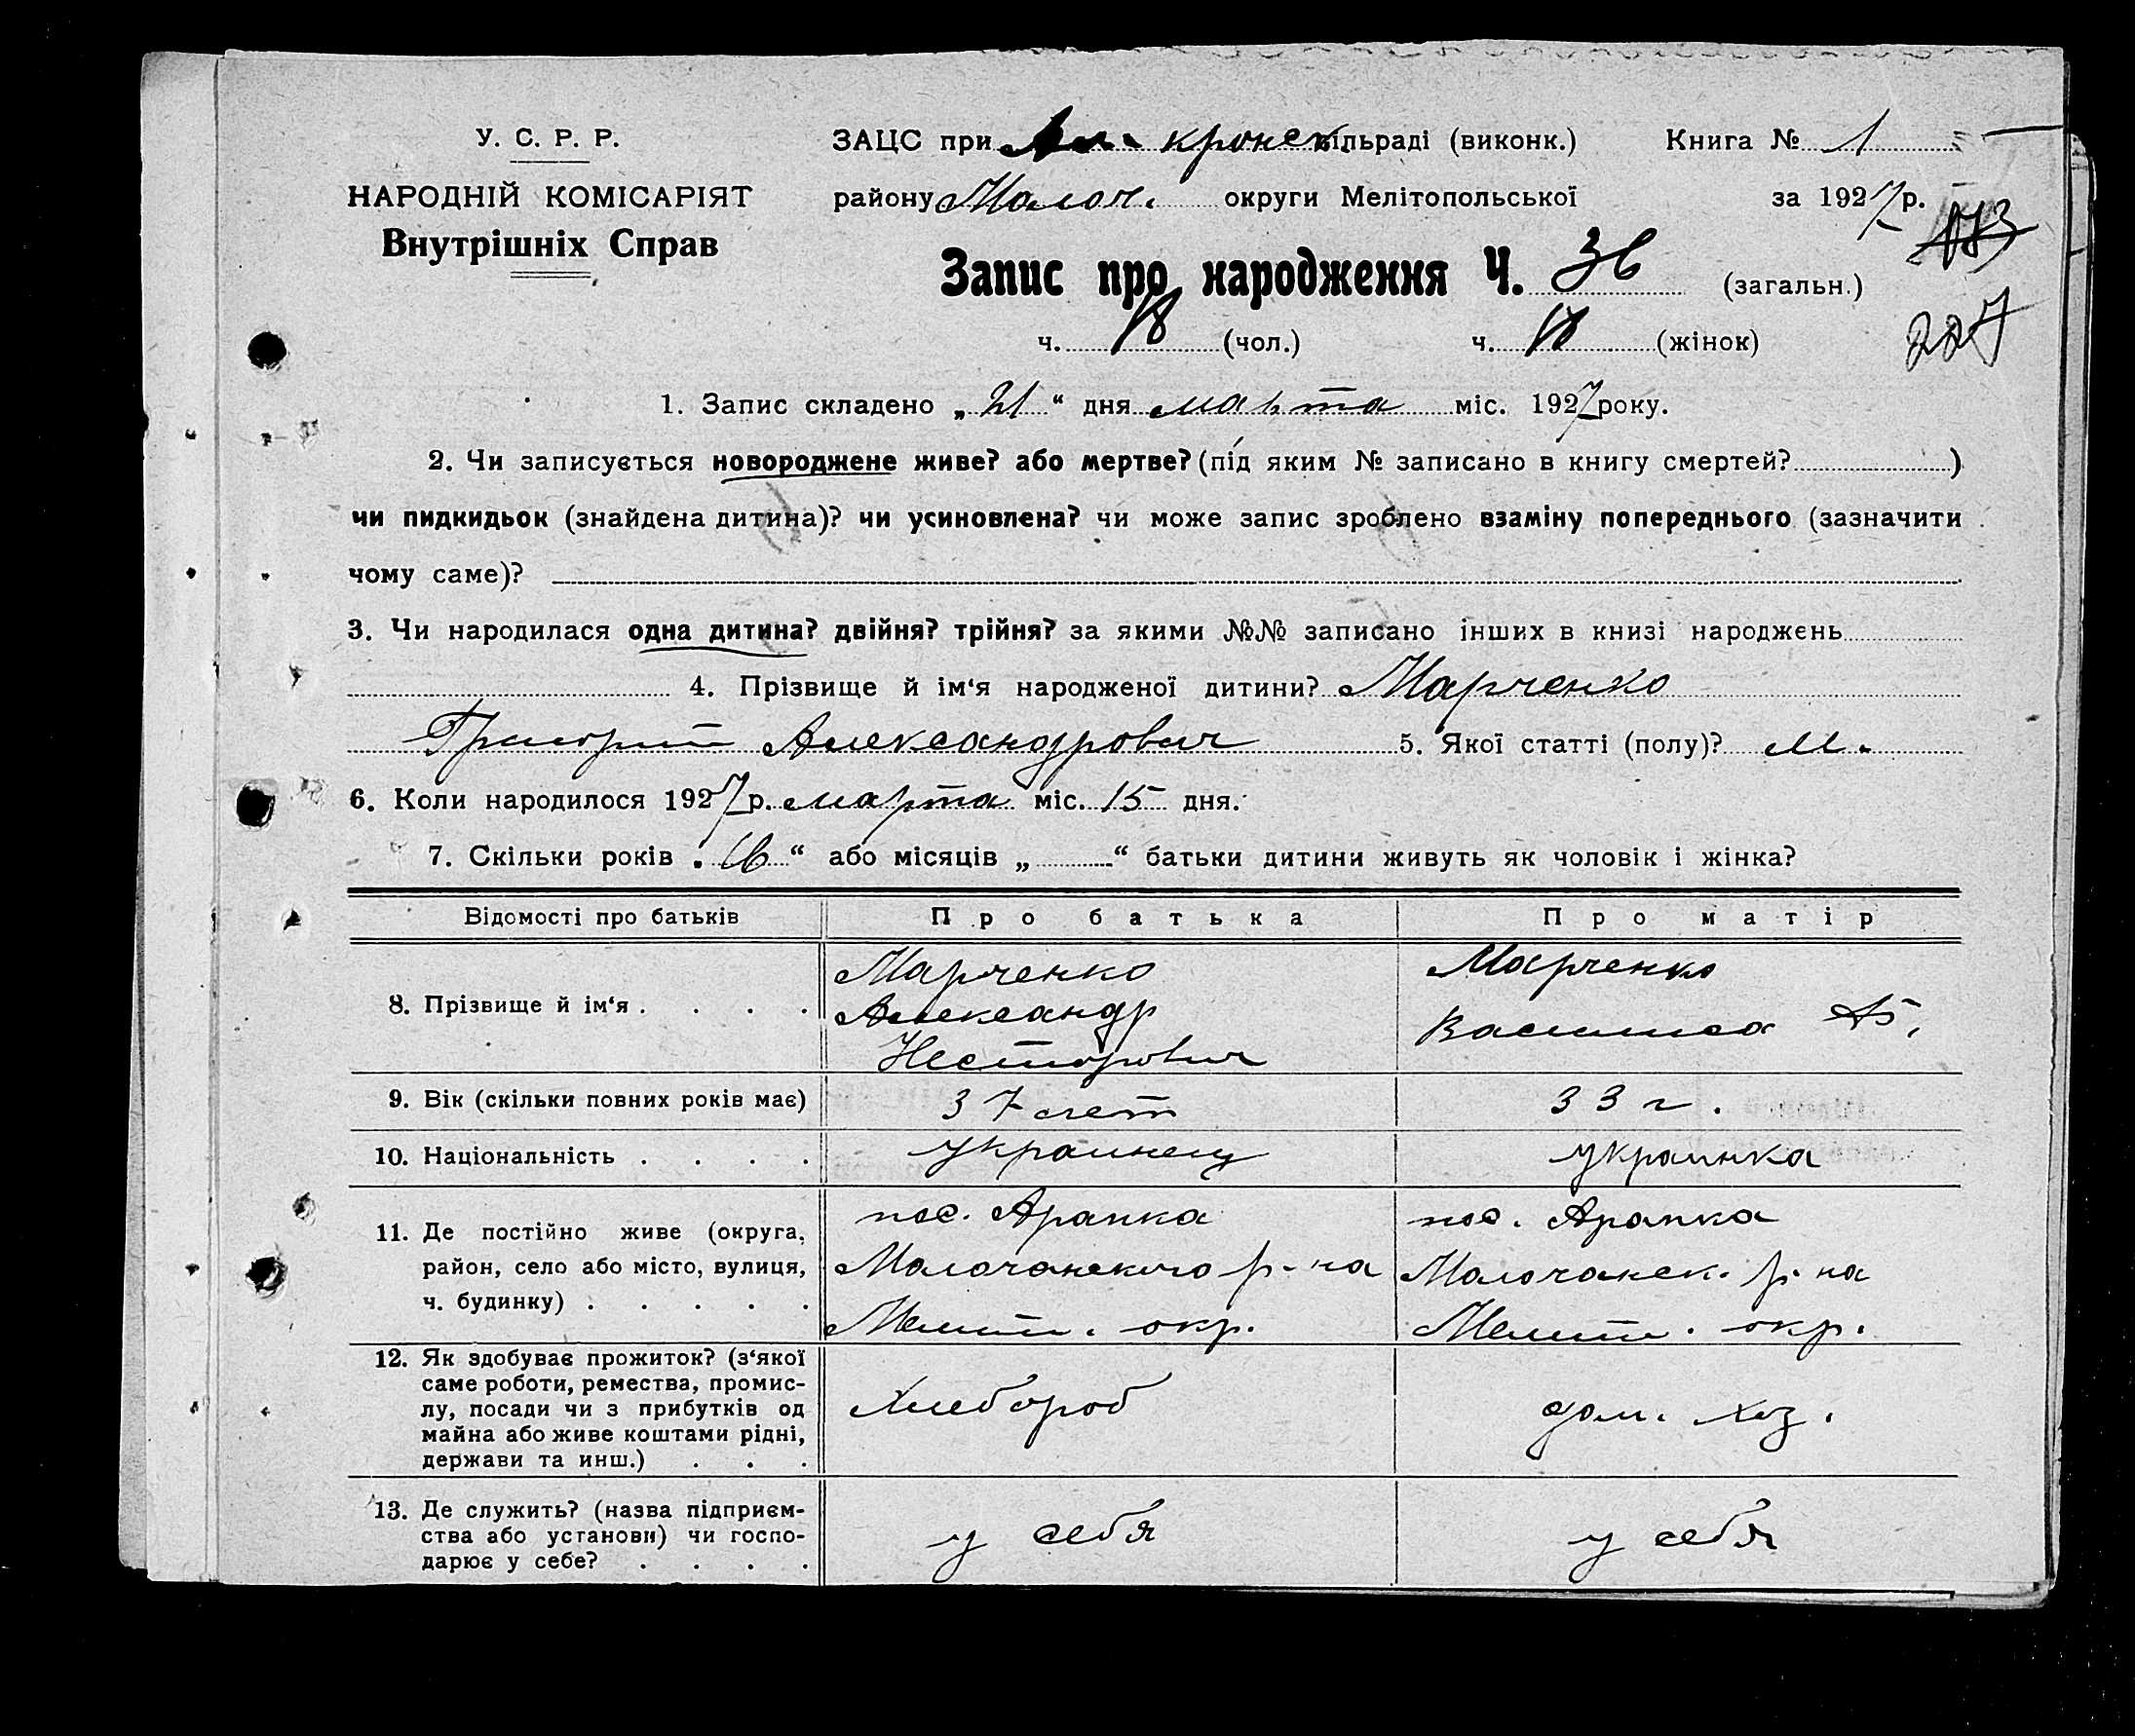 У. С. Р. Р.
НАРОДНІЙ КОМІСАРІЯТ
Внутрішніх Справ
ЗАЦС при кронск. сільраді (виконк.) Книга № 1
району Молоч. округи Мелітопольської за 1927 р.
173
Запис про народження Ч. 36 (загальн.)
ч. 18 (чол.) ч. 18 (жінок)
227
1. Запис складено „21“ дня марта міс. 1927 року.
2. Чи записується новороджене живе? або мертве? (під яким № записано в книгу смертей? )
чи пидкидьок (знайдена дитина)? чи усиновлена? чи може запис зроблено взаміну попереднього (зазначити
чому саме)?
3. Чи народилася одна дитина? двійня? трійня? за якими №№ записано інших в книзі народжень
4. Прізвище й ім‘я народженої дитини? Марченко
Григорий Александрович 5. Якої статті (полу)? М.
6. Коли народилося 1927 р. марта міс. 15 дня.
7. Скільки років „16“ або місяців „ “ батьки дитини живуть як чоловік і жінка?
Відомості про батьків Про батька Про матір
8. Прізвище й ім‘я . . . . Марченко Александр Несторович Марченко Василиса
9. Вік (скільки повних років має) 37 лет 33 г.
10. Національність . . . . украинец украинка
11. Де постійно живе (округа, пос. Арапка пос. Арапка
район, село або місто, вулиця, Молочанского р-на Молочанск. р-на
ч. будинку) . . . . . Мелит. окр. Мелит. окр.
12. Як здобуває прожиток? (з‘якої
саме роботи, ремества, промис-
лу, посади чи з прибутків од Хлебороб дом. хоз.
майна або живе коштами рідні,
держави та инш.) . . .
13. Де служить? (назва підприєм-
ства або установи) чи госпо- у себя у себя
дарює у себе? . . . .